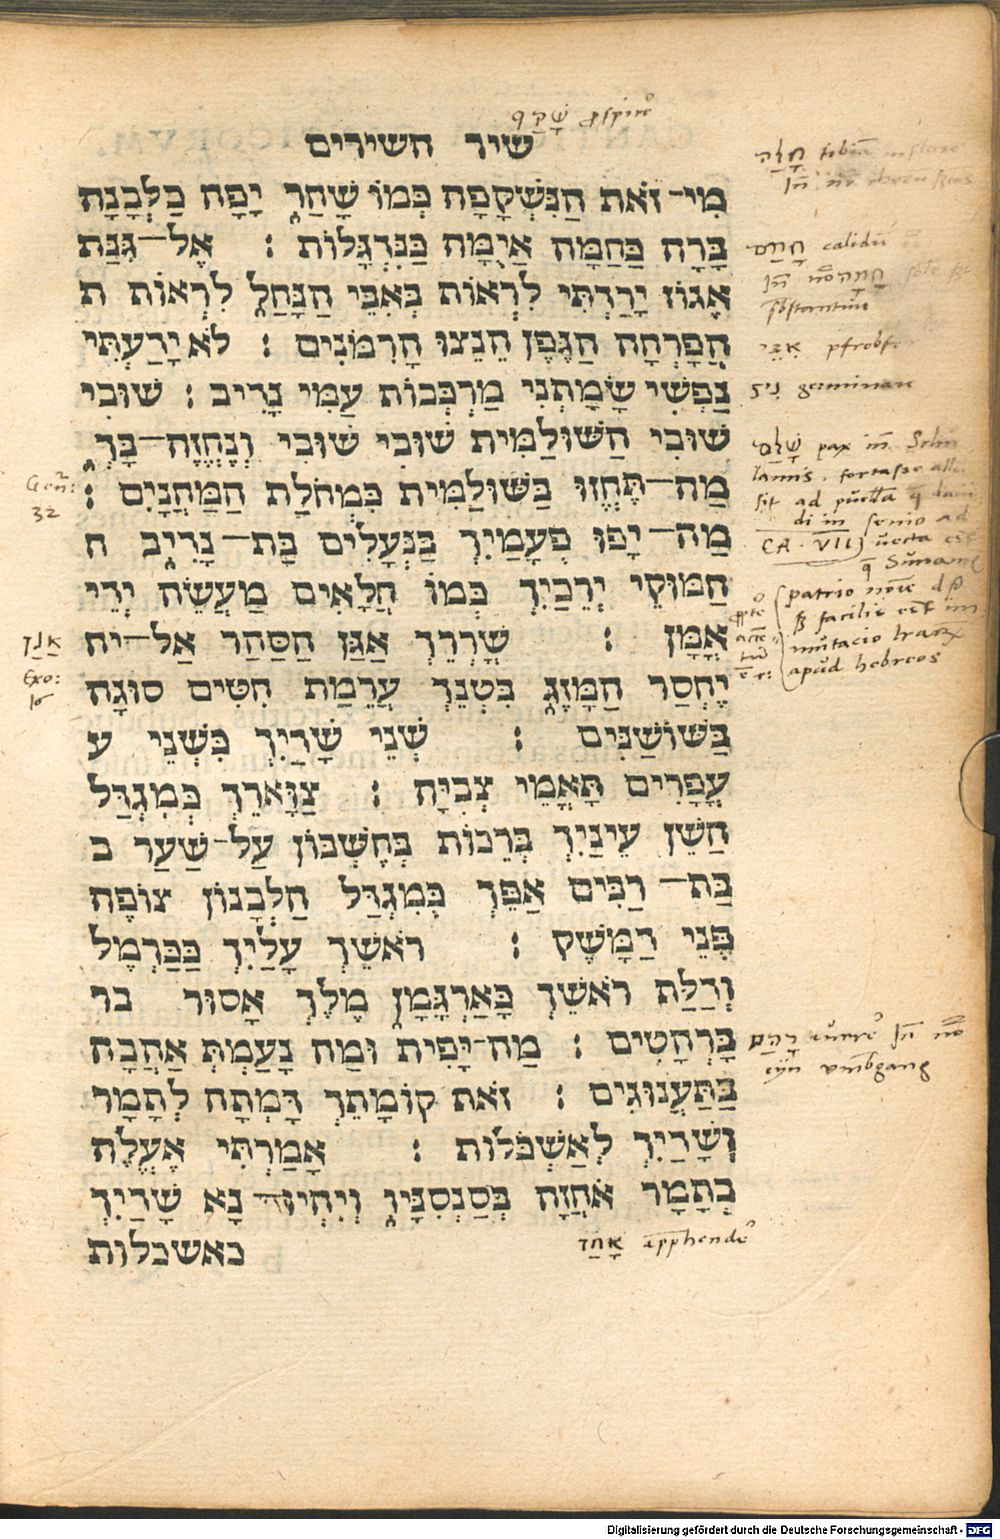 שיר השירים
מִי־ זֹאת הַנִּשְׁקָפָה כְּמוֹ שָׁחַר יָפָה כַלְּבָנָה
בָּרָה כַּחַמָּה אַיֻמָּה כַּנִּדְגָּלוֹת : אֶל־גִּנַּת
אֱגוֹז יָרַדְתִּי לִרְאוֹת בְּאִבֵּי הַנָּחַל לִרְאוֹת ה
הֲפָרְחָה הַגֶּפֶן הֵנֵצוּ הָרִמֹּנִים : לֹא יָדַעְתִּי
נַפְשִׁי שָׂמַתְנִי מַרְכְּבוֹת עַמִּי נָדִיב : שׁוּבִי
שׁוּבִי הַשּׁוּלַמִּית שׁוּבִי שׁוּבִי וְנֶחֱזֶה־בָּךְ
מַה־תֶּחֱזוּ בַּשּׁוּלַמִּית כִּמְחֹלַת הַמַּחֲנָיִם :
מַה־ יָפוּ פְעָמַיִךְ בַּנְּעָלִים בַּת־ נָדִיב ח
חַמּוּקֵי יְרֵכַיִךְ כְּמוֹ חֲלָאִים מַעֲשֵׂה יְדֵי
אָמָּן : שָׁרְרֵךְ אַגַּן הַסַּהַר אַל־יֶח
יֶחְסַר הַמָּזֶג בִּטְנֵךְ עֲרֵמַת חִטִּים סוּגָה
בַּשּׁוֹשַׁנִּים : שְׁנֵי שָׁדַיִךְ כִּשְׁנֵי ע
עֳפָרִים תָּאֳמֵי צְבִיָּה : צַוָּארֵךְ כְּמִגְדַּל
הַשֵּׁן עֵינַיִךְ בְּרֵכוֹת בְּחֶשְׁבּוֹן עַל־שַׁעַר ב
בַּת־ רַבִּים אַפֵּךְ כְּמִגְדַּל הַלְּבָנוֹן צוֹפֶה
פְּנֵי דַמָּשֶׂק : רֹאשֵׁךְ עָלַיִךְ כַּכַּרְמֶל
וְדַלַּת רֹאשֵׁךְ כָּאַרְגָּמָן מֶלֶךְ אָסוּר בר
בָּרְהָטִים : מַה־יָּפִית וּמַה נָּעַמְתְּ אַהֲבָה
בַּתַּעֲנוּגִים : זֹאת קוֹמָתֵךְ דָּמְתָה לְתָמָר
וְשָׁדַיִךְ לְאַשְׁכֹּלוֹת : אָמַרְתִּי אֶעֱלֶה
בְתָמָר אֹחֲזָה בְּסַנְסִנָּיו וְיִהְיוּ־ נָא שָׁדַיִךְ
כאשכלות
חָמַם calidū
אִבֵּי
germinare
שָׁלַם pax
ad
patrio
facilis
apud hebreos
אַגַן
Exo:
32
eyn vmbgang
אָחַז